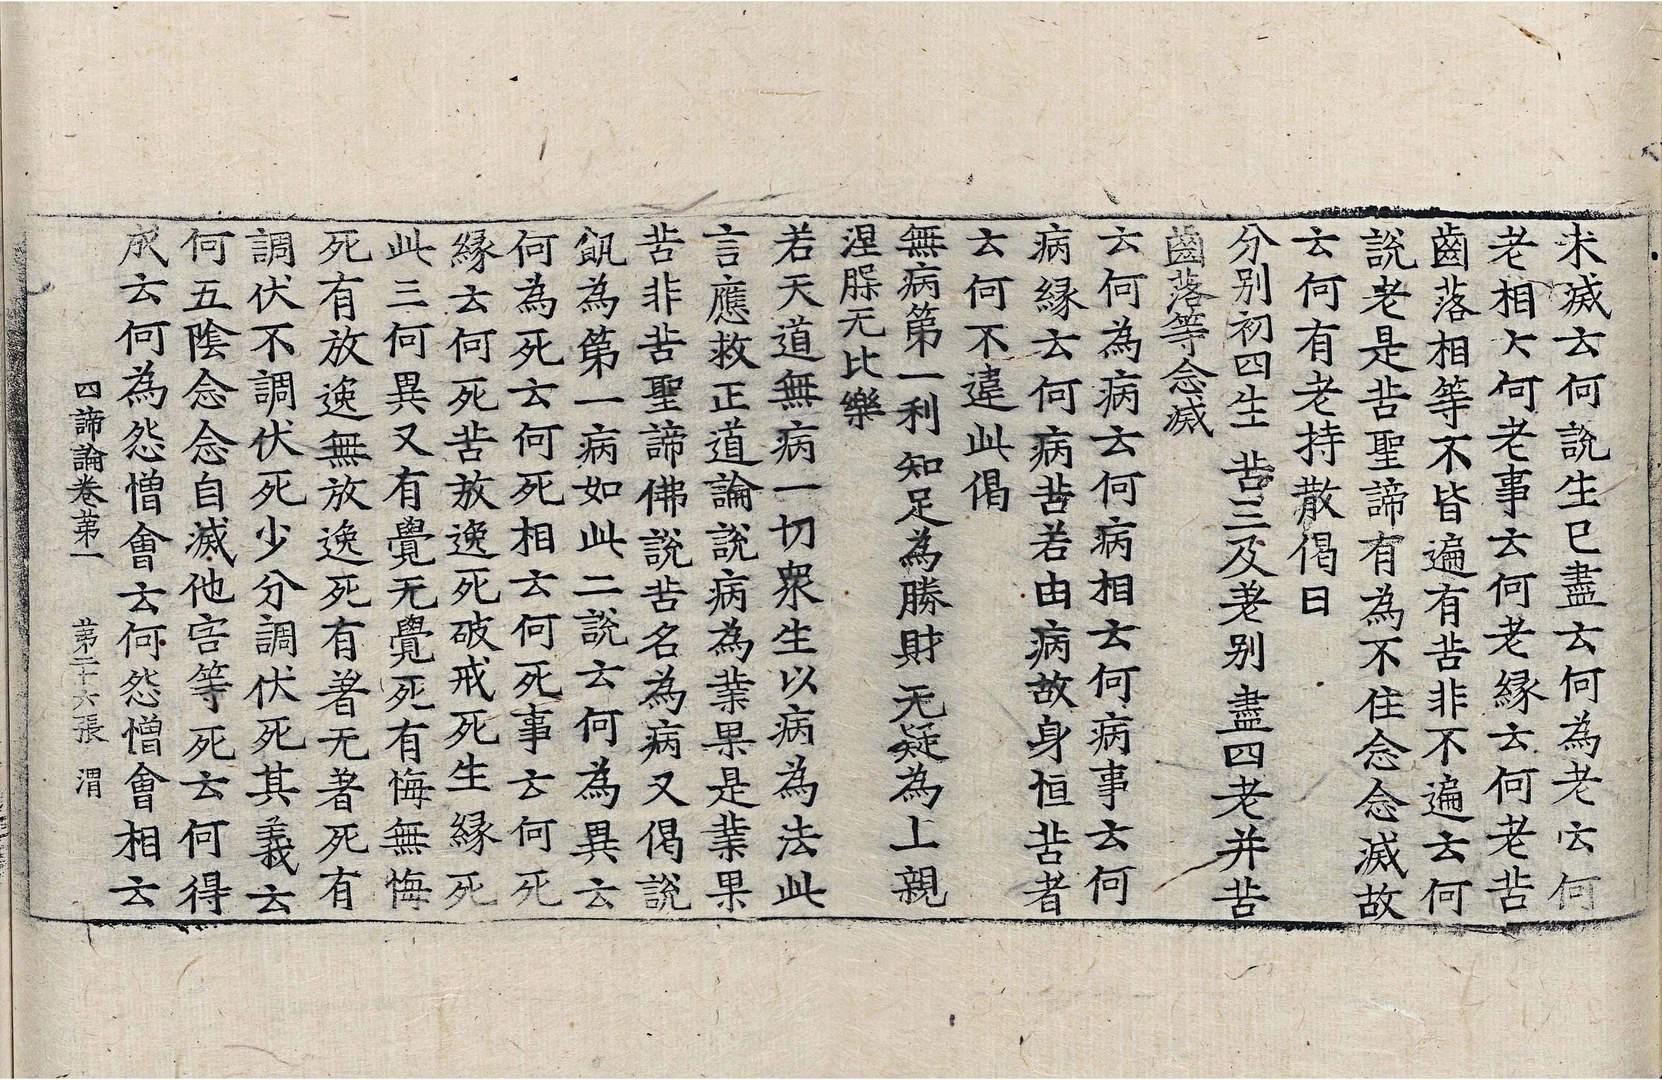 未滅云何說生已盡云何為老云何
老相云何老事云何老緣云何老苦
齒落相等不皆遍有苦非不遍云何
說老是苦聖諦有為不住念念滅故
云何有老持散偈曰
分別初四生 苦三及老別 盡四老并苦
齒落等念滅
云何為病云何病相云何病事云何
病緣云何病苦若由病故身恒苦者
云何不違此偈
無病第一利 知足為勝財 无疑為上親
涅脲无比樂
若天道無病一切衆生以病為法此
言應救正道論說病為業果是業果
苦非苦聖諦佛說苦名為病又偈說
飢為第一病如此二說云何為異云
何為死云何死相云何死事云何死
緣云何死苦放逸死破戒死生緣死
此三何異又有覺无覺死有悔無悔
死有放逸無放逸死有著无著死有
調伏不調伏死少分調伏死其義云
何五陰念念自滅他害等死云何得
成云何為怨憎會云何怨憎會相云
四諦論卷第一 第二十六張 渭